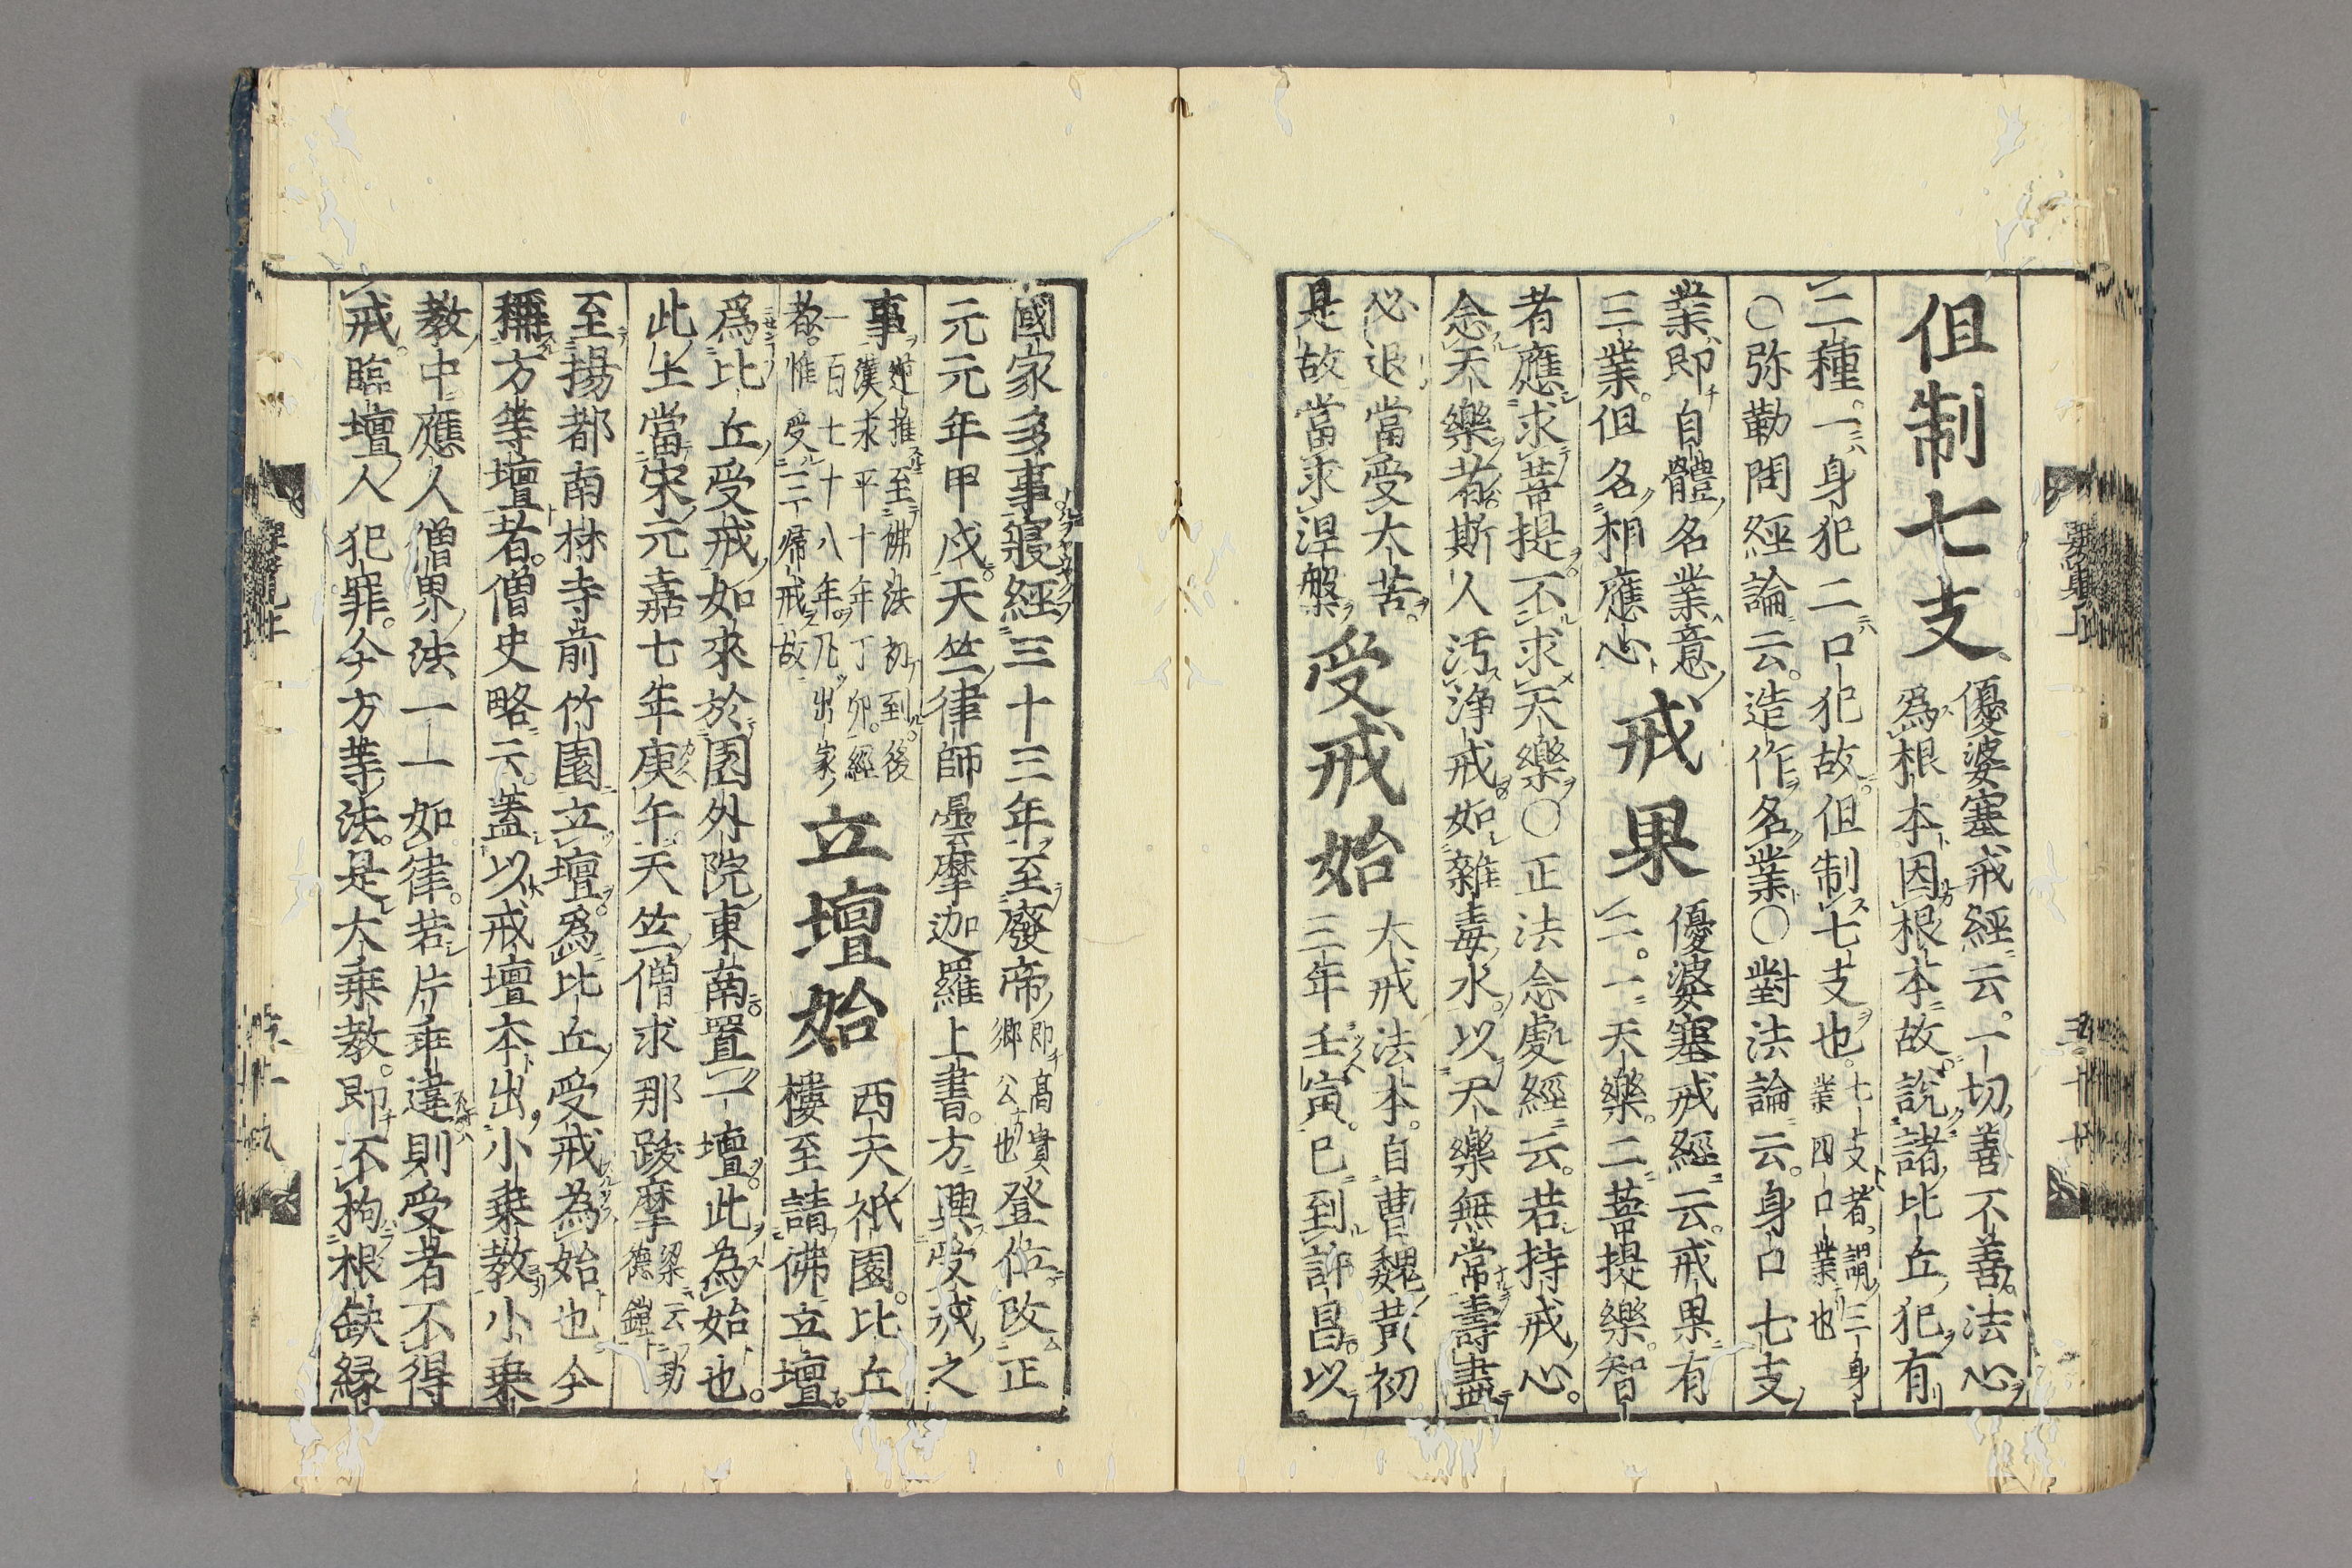 但制七支
優婆塞戒經云。一切善不善法心
爲根本因根本故。說諸比丘犯有
二種。一身犯二口犯故。但制七支也。
七支者。謂三身
業四口業也
○弥勒問經論云。造作名業○對法論云。身口七支
業即自體名業意
三業。但名相應心
戒果
優婆塞戒經云。戒果有
二。一天樂。二菩提樂。智
者應求菩提。不求天樂○正法念處經云。若持戒心。
念天樂者。斯人汚浄戒如雜毒水。以天樂無常壽盡
必退當受大苦。
是故當求涅槃
受戒始
大戒法本。自曹魏黄初
三年壬寅。巳到許昌。以
國家多事寢經三十三年。至廢帝
即高貴
郷公也
登位改正
元元年甲戌。天竺律師曇摩迦羅上書。方興受戒之
事
逆推至佛法初到。後
漢永平十年丁卯。經
一百七十八年。凡出家
者。惟受三歸戒故
立壇始
西天祇園。比丘
樓至請佛立壇。
爲比丘受戒如來於園外院東南置一壇。此為始也。
此土當宋元嘉七年庚午天竺僧求那跋摩
梁云功
德鎧
至揚都南林寺前竹園立壇。爲比丘受戒為始也今
稱方等壇者。僧史略云。蓋以戒壇本出小乗教小乗
教中應人僧界法一一如律。若片乖違則受者不得
戒。臨壇人犯罪。今方等法。是大乗教。即不拘根缺縁